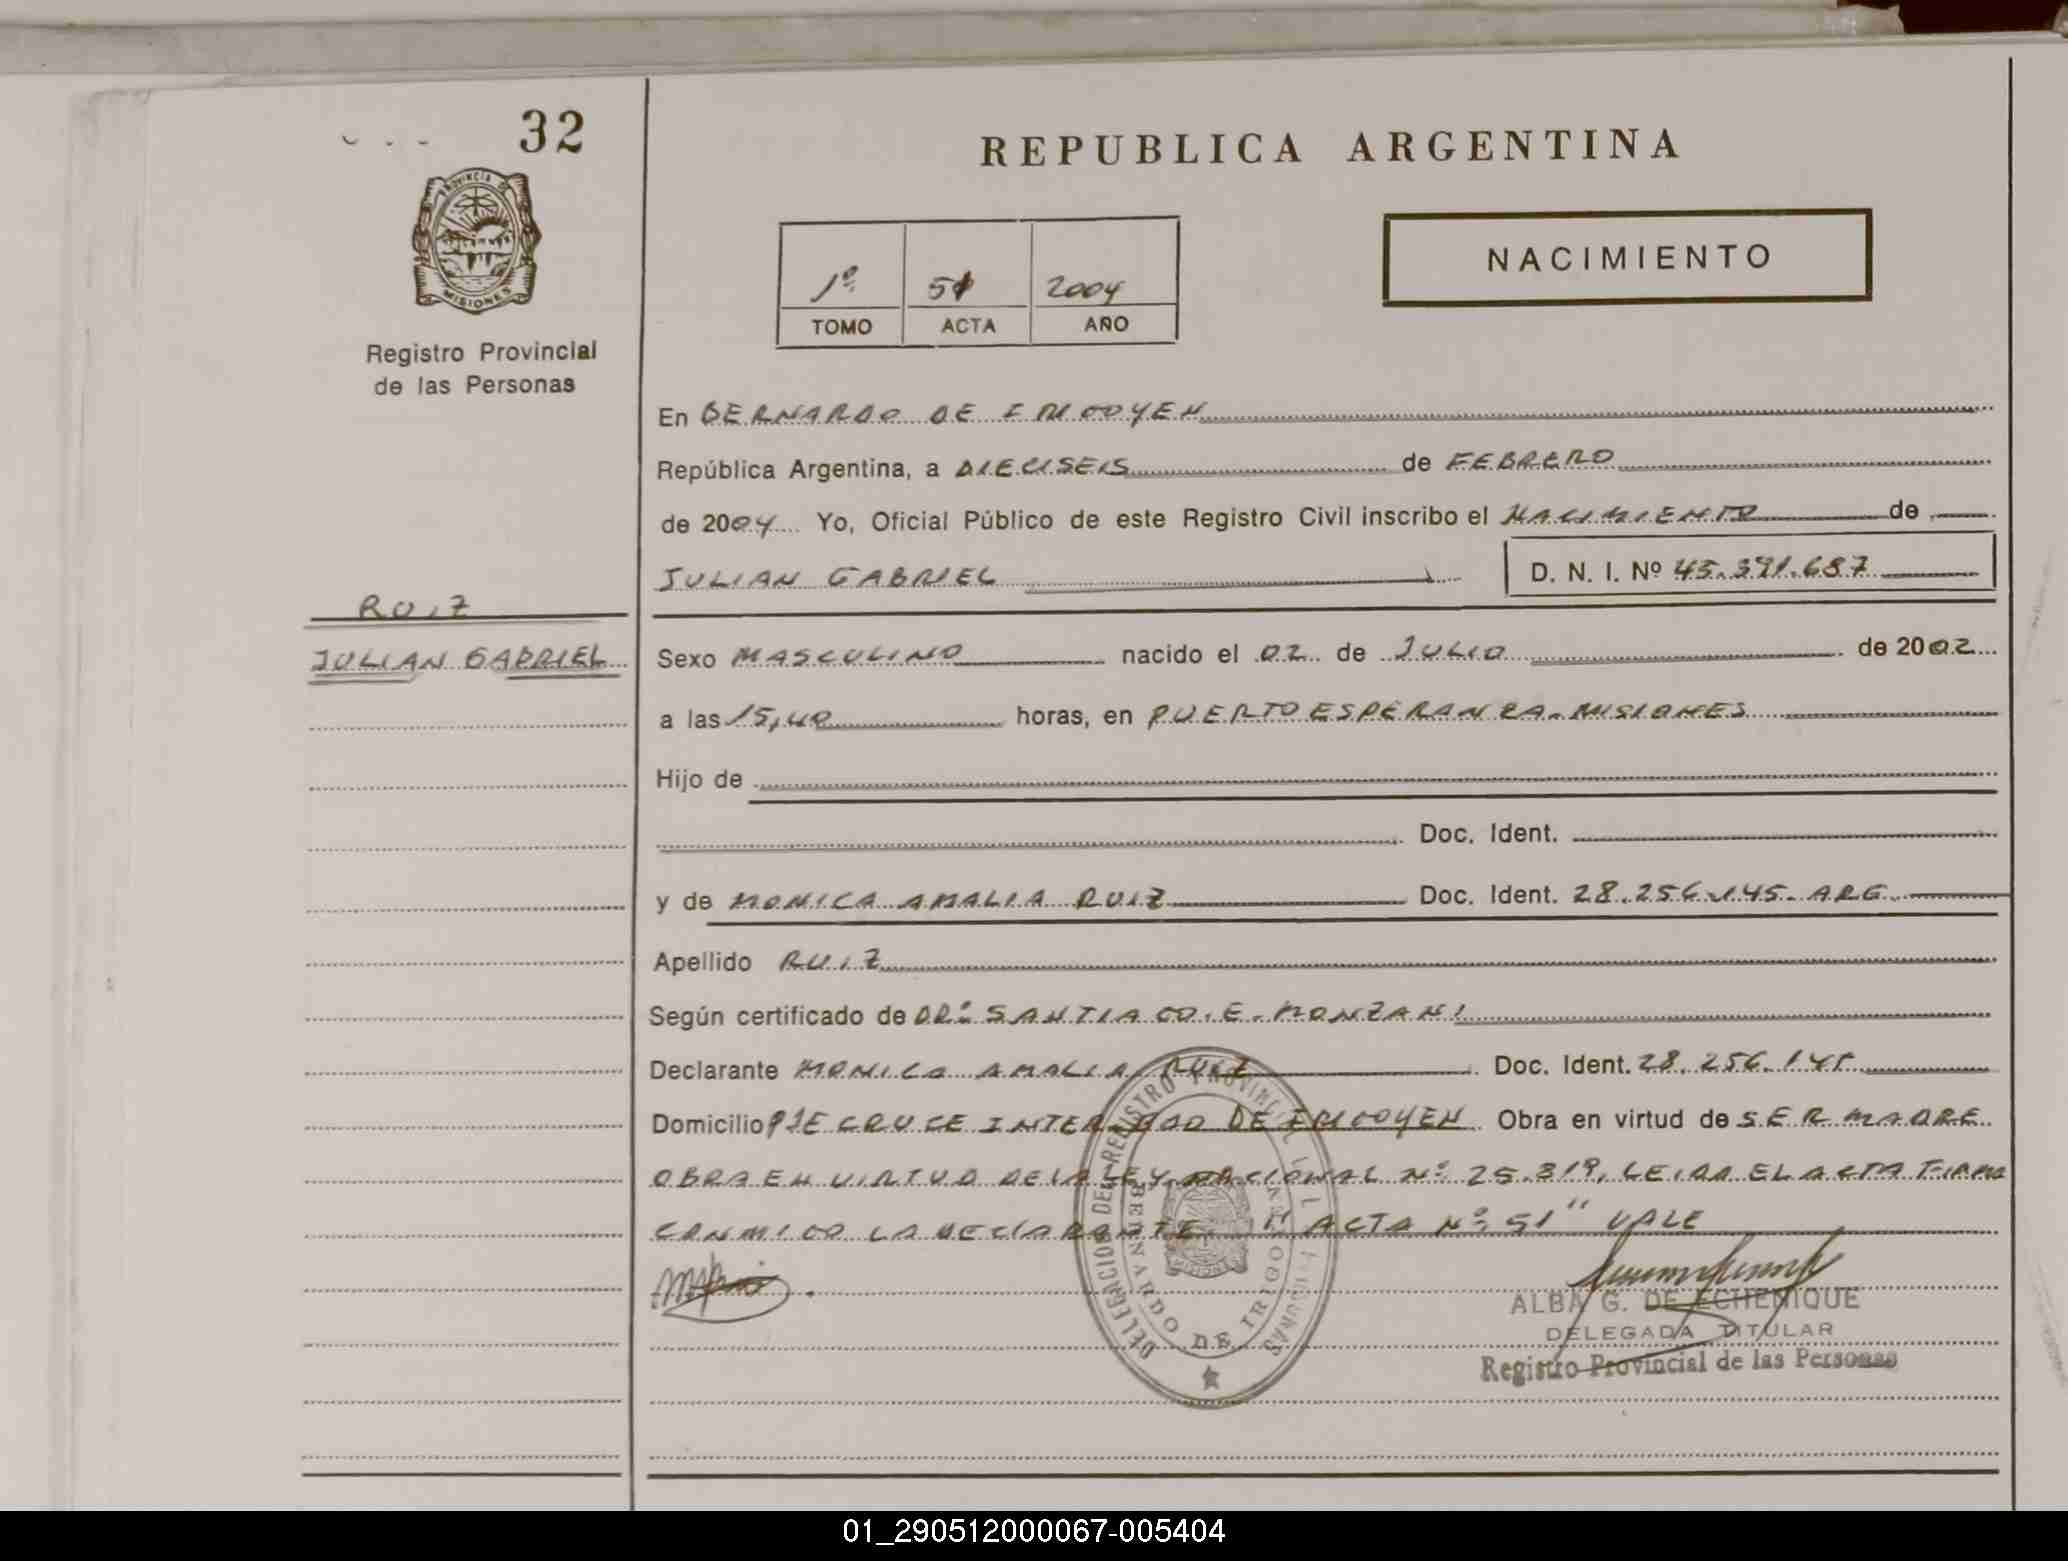 32
REPUBLICA ARGENTINA
PROVINCIA DE
MISIONES
Registro Provincial
de las Personas
NACIMIENTO
1º 51 2004
TOMO ACTA AÑO
En BERNARDO DE IRIGOYEN
República Argentina, a DIECISEIS de FEBRERO
de 2004 Yo, Oficial Público de este Registro Civil inscribo el NACIMIENTO de
JULIAN GABRIEL D. N. I. Nº 45.391.687
RUIZ
JULIAN GABRIEL
Sexo MASCULINO nacido el 02 de JULIO de 2002
a las 15,40 horas, en PUERTO ESPERANZA. MISIONES
Hijo de
Doc. Ident.
y de MONICA AMALIA RUIZ Doc. Ident. 28.256.145. ARG.
Apellido RUIZ
Según certificado de DRº SANTIAGO. E. MONZANI
Declarante MONICA AMALIA RUIZ Doc. Ident. 28.256.145
Domicilio PJE CRUCE INTER BDO DE IRIGOYEN Obra en virtud de SER MADRE
OBRA EN VIRTUD DE LA LEY NACIONAL Nº 25.819, LEIDA EL ACTA FIRMA
CONMIGO LA DECLARANTE. "ACTA Nº 51" VALE
DELEGACION DEL REGISTRO PROVINCIAL DE LAS PERSONAS
BERNARDO DE IRIGOYEN
ALBA G. DE ECHENIQUE
DELEGADA TITULAR
Registro Provincial de las Personas
01_290512000067-005404